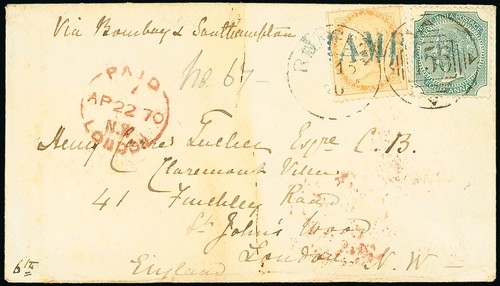 Via Bombay & Southampton
No. 67-
PAID
AP 22 70
N.W
LONDON
Henry Esqre C. B.
Claremont Villa,
41 Finchley Road
St John's Wood
London N. W -
England
6th